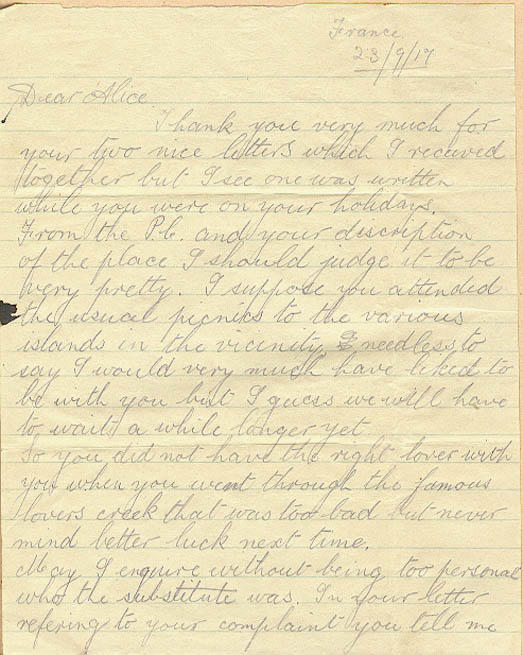 France
23/9/17
Dear Alice
Thank you very much for
your two nice letters which I received
together but I see one was written
while you were on your holidays.
From the P.C. and your discription
of the place I should judge it to be
very pretty. I suppose you attended
the usual picnics to the various
islands in the vicinity needless to
say I would very much have liked to
be with you but I guess we will have
to wait a while longer yet
So you did not have the right lover with
you when you went through the famous
lovers creek that was too bad but never
mind better luck next time.
May I enquire without being too personal
who the substitute was. In your letter
refering to your complaint you tell me